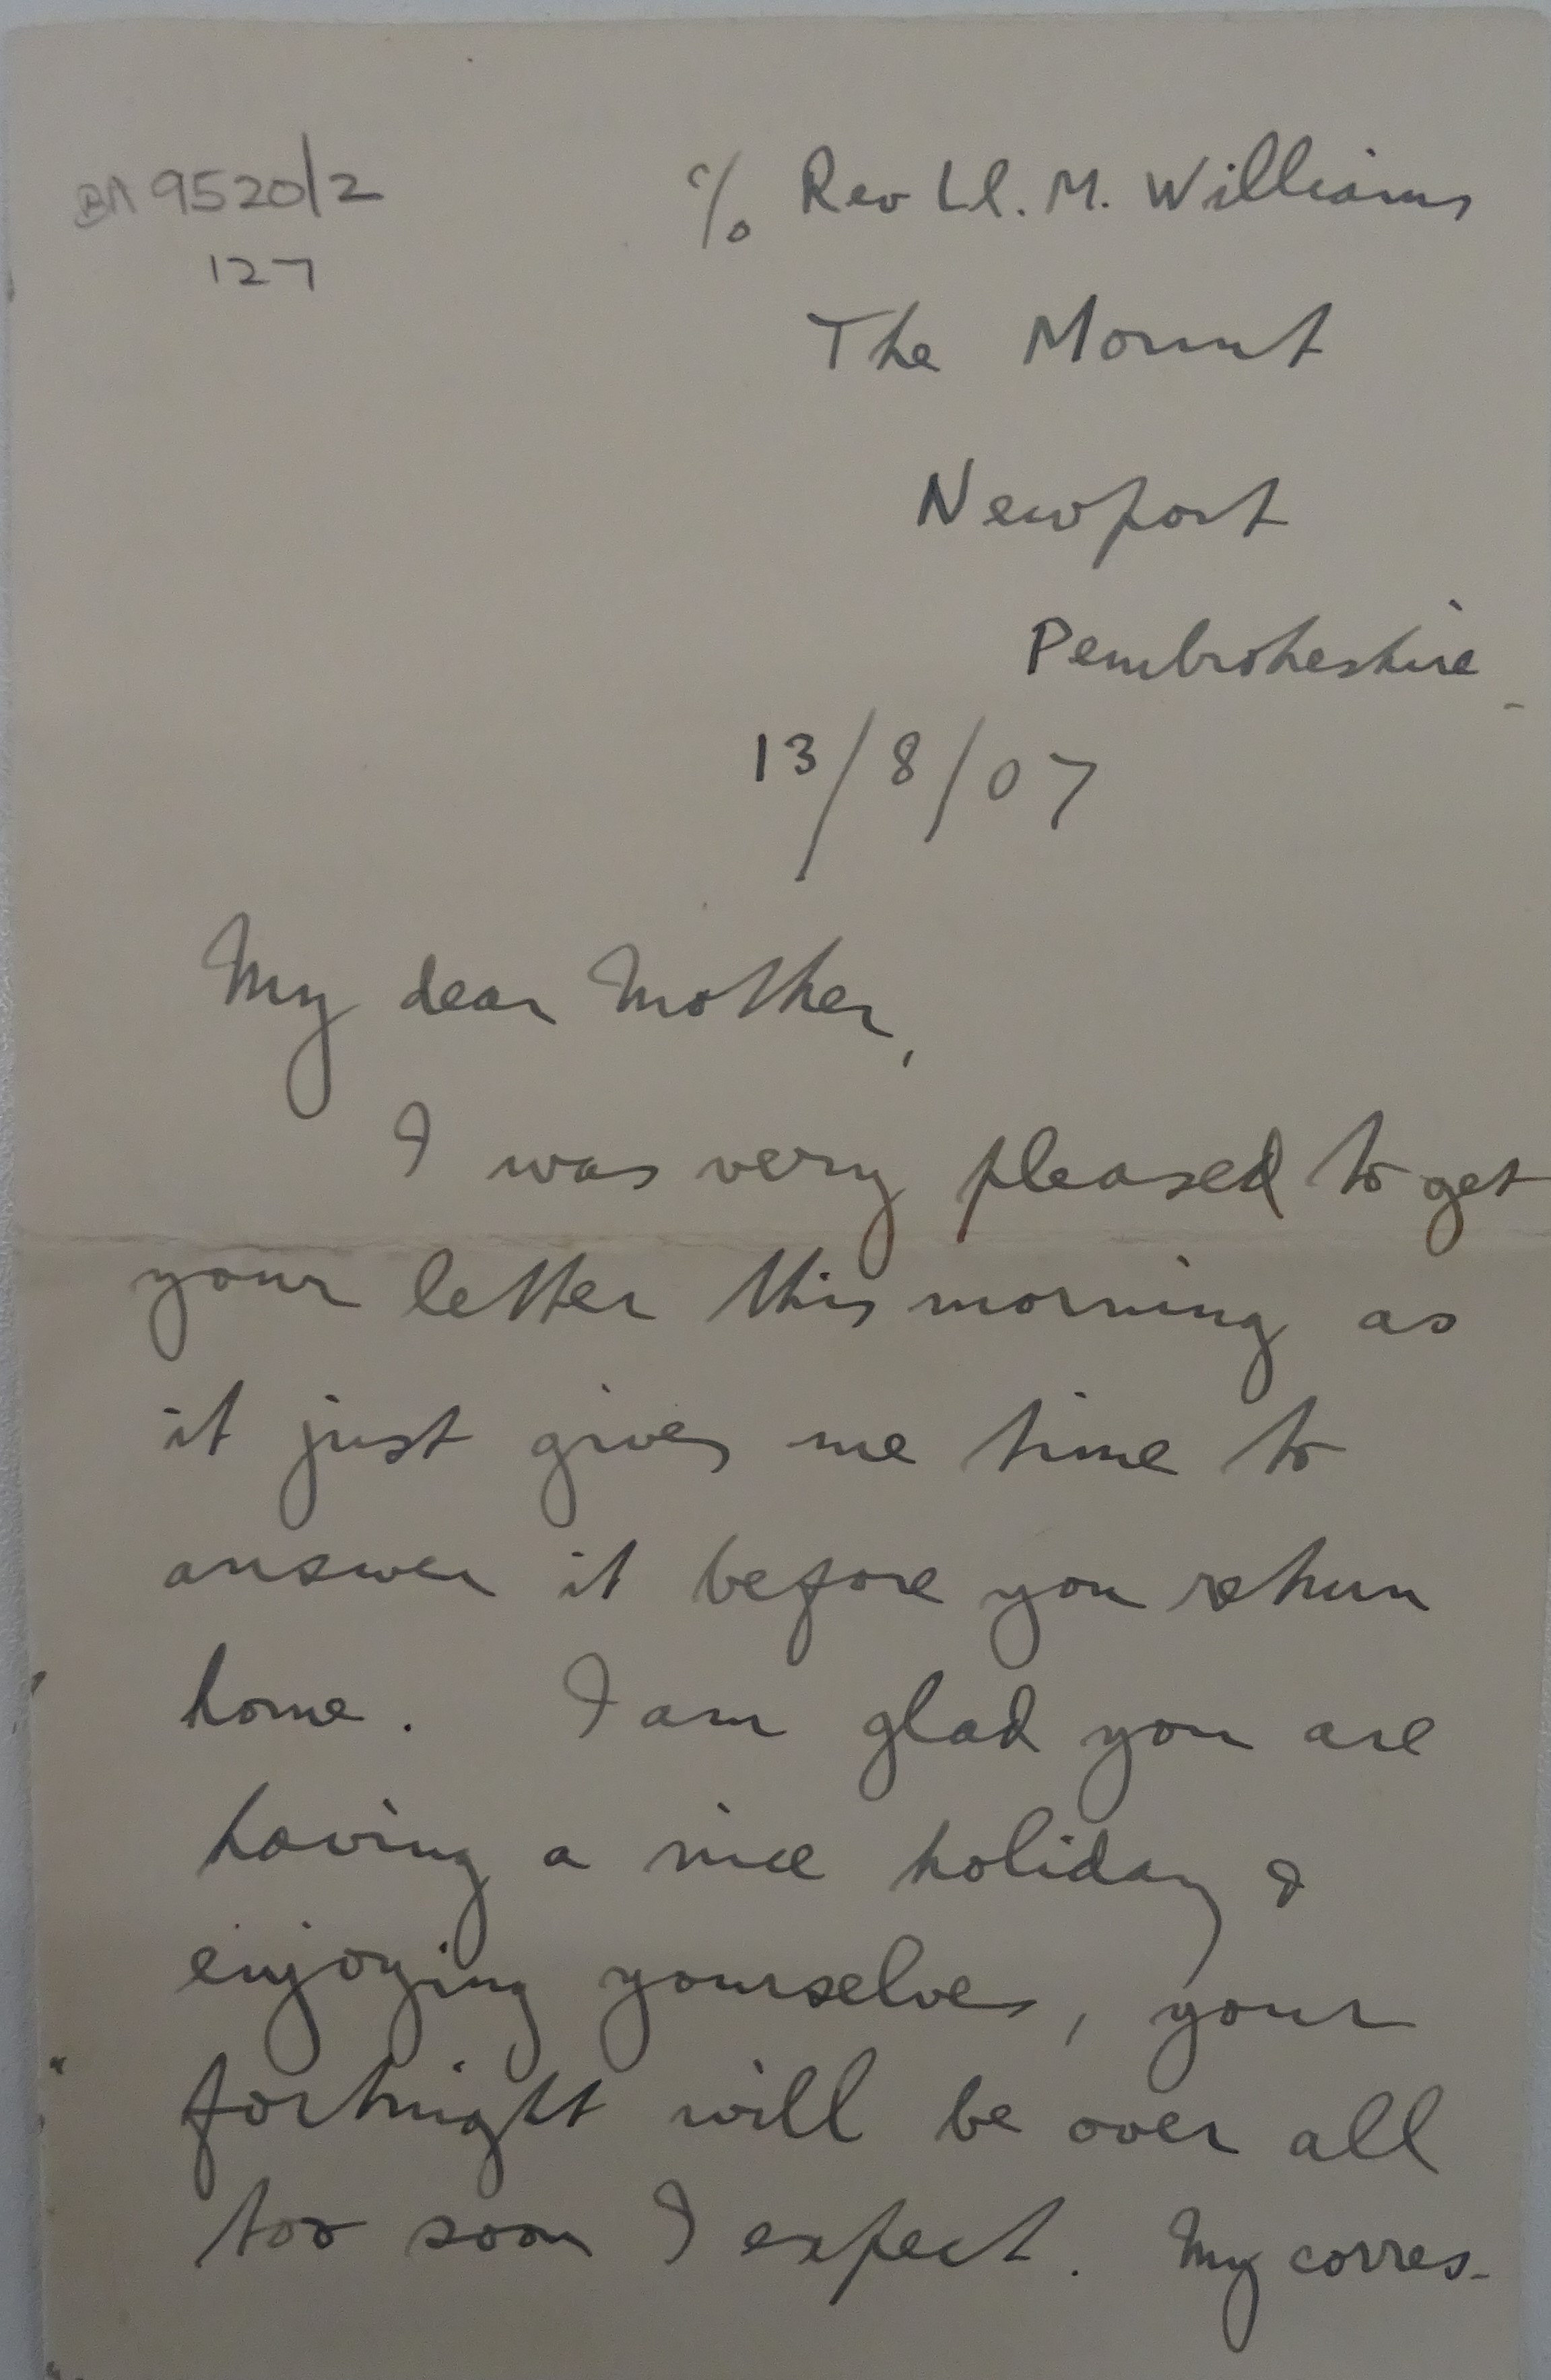 BA 9520/2
127
c/o Rev Ll. M. Williams
The Mount
Newport
Pembrokeshire
13/8/07
My dear Mother,
I was very pleased to get
your letter this morning as
it just gives me time to
answer it before you return
home. I am glad you are
having a nice holiday &
enjoying yourselves, your
fortnight will be over all
too soon I expect. My corres-